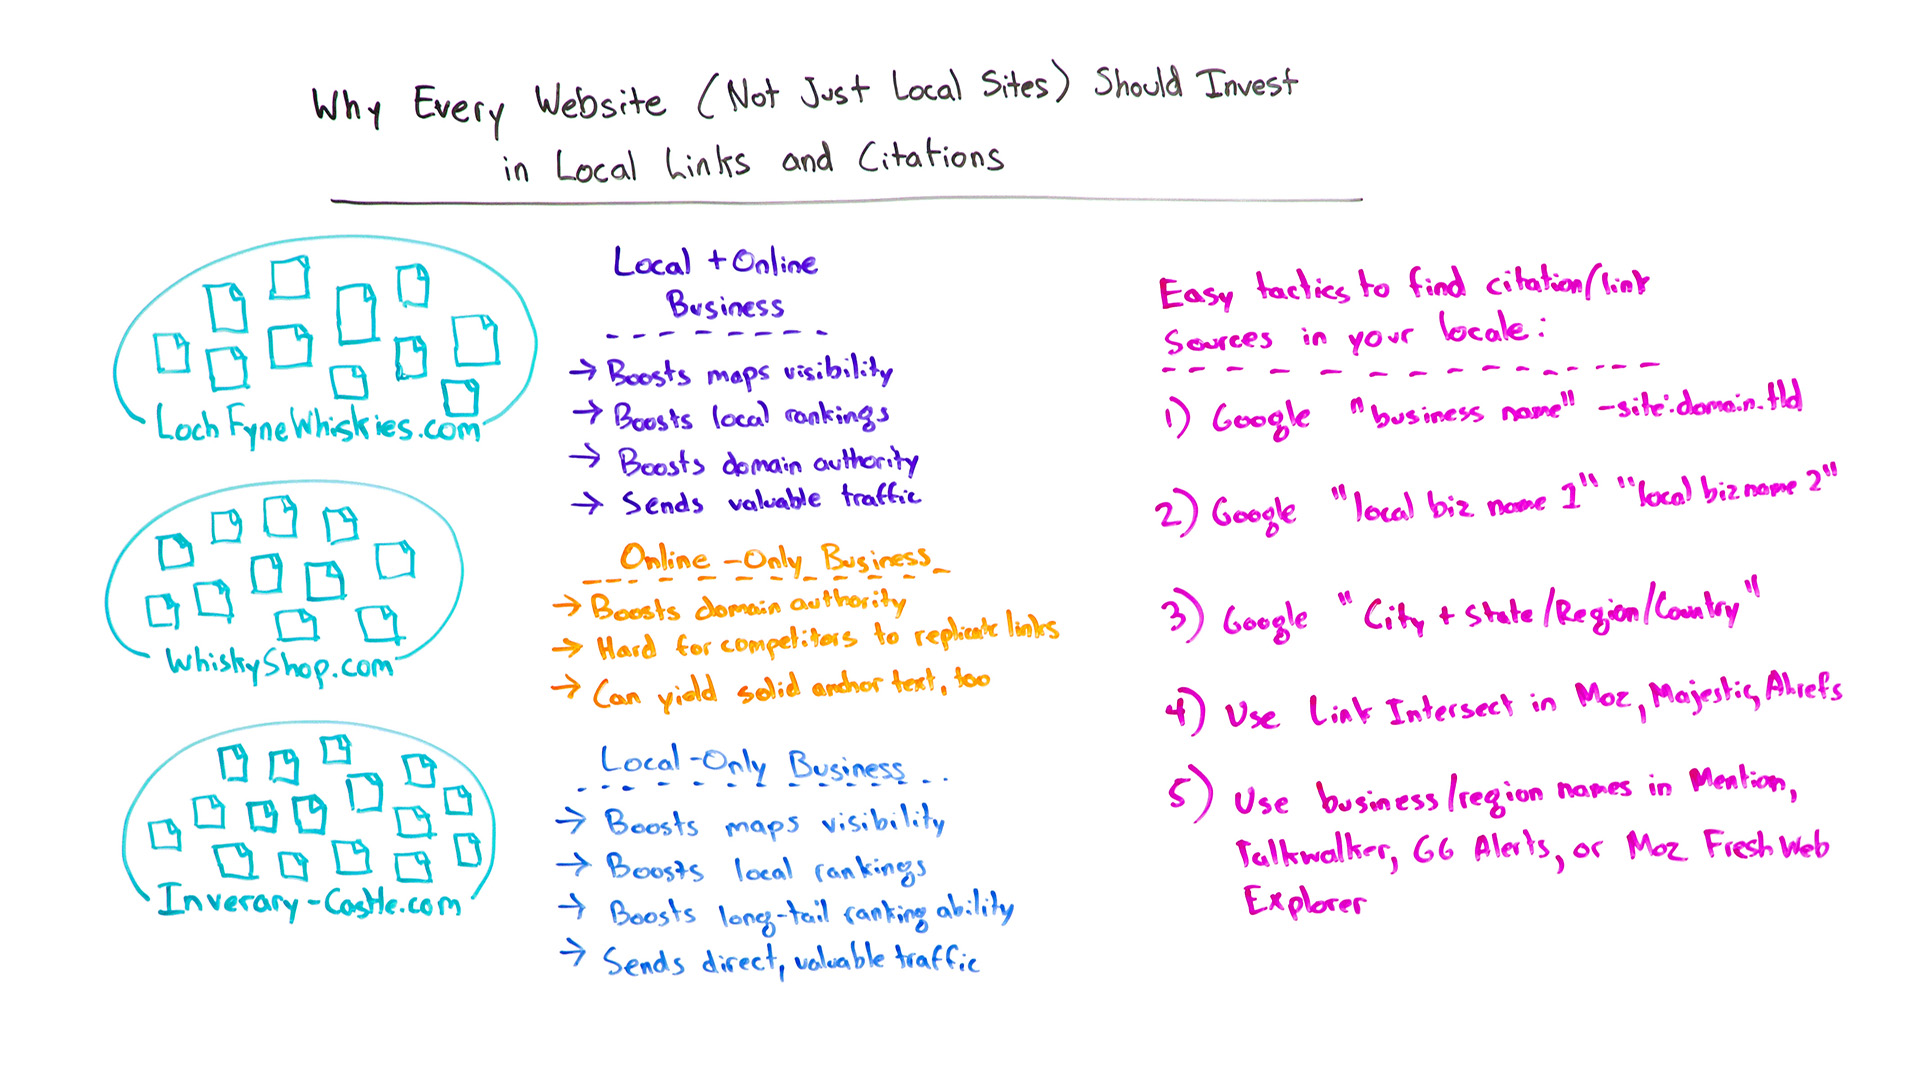 Why Every Website (Not Just Local Sites) Should Invest
in Local Links and Citations
LochFyneWhiskies.com
WhiskyShop.com
Inverary-Castle.com
Local + Online
Business
→ Boosts maps visibility
→ Boosts local rankings
→ Boosts domain authority
→ Sends valuable traffic
Online-Only Business
→ Boosts domain authority
→ Hard for competitors to replicate links
→ Can yield solid anchor text, too
Local-Only Business
→ Boosts maps visibility
→ Boosts local rankings
→ Boosts long-tail ranking ability
→ Sends direct, valuable traffic
Easy tactics to find citation/link
Sources in your locale:
1) Google "business name" -site:domain.tld
2) Google "local biz name 1" "local biz name 2"
3) Google "City + State/Region/Country"
4) Use Link Intersect in Moz, Majestic, Ahrefs
5) Use business/region names in Mention,
Talkwalker, GG Alerts, or Moz Fresh Web
Explorer